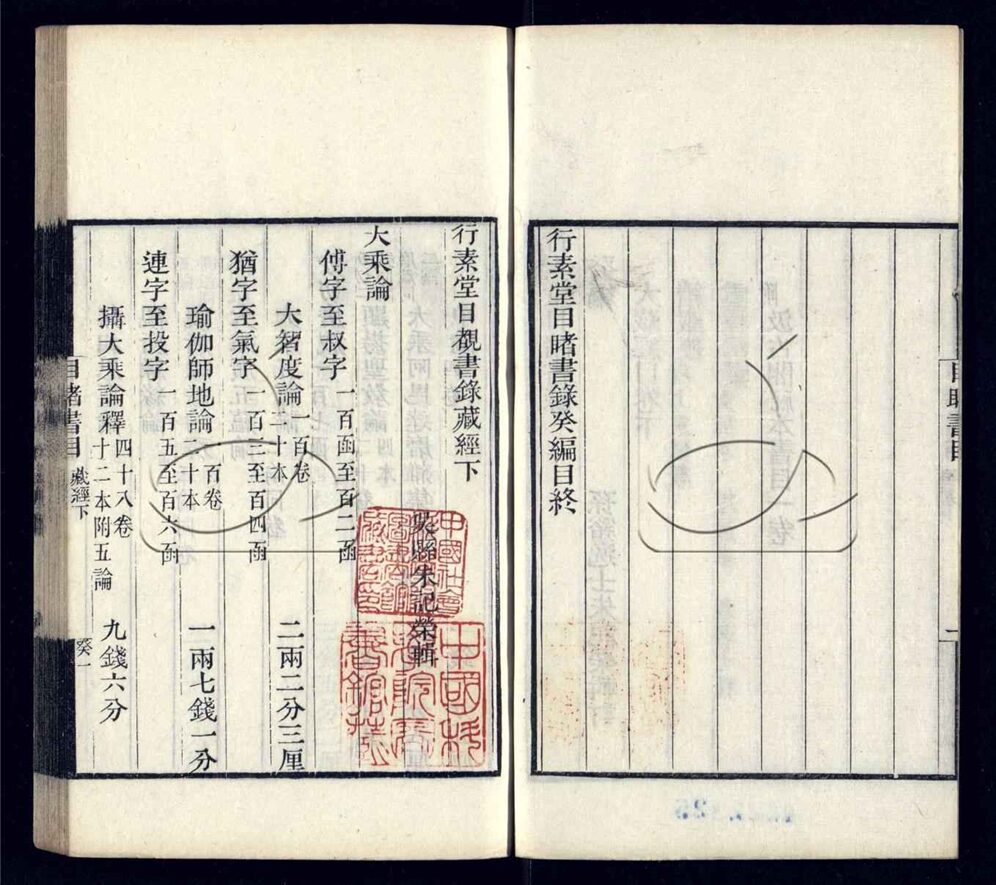 行素堂目睹書錄癸編目終
行素堂目覩書錄藏經下
吳縣朱記榮輯
大乘論
傅字至叔字 一百函至百二函
大智度論 一百卷二十本 二兩二分三厘
猶字至氣字 百三至百四函
瑜伽師地論 百卷二十本 一兩七錢一分
連字至投字 一百五至百六函
攝大乘論釋 四十八卷十二本附五論 九錢六分
目睹書目 藏經下 癸一